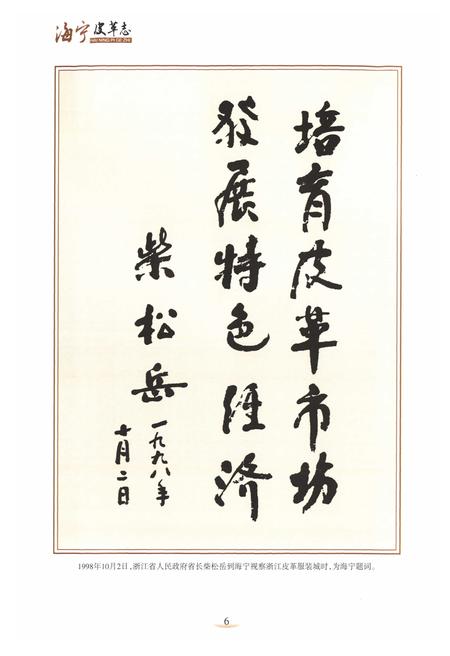 海宁皮革志
HAI NING PI GE ZHI
培育皮革市场
發展特色经济
柴松岳
一九九八年
十月二日
1998年10月2日,浙江省人民政府省长柴松岳到海宁视察浙江皮革服装城时,为海宁题词。
6